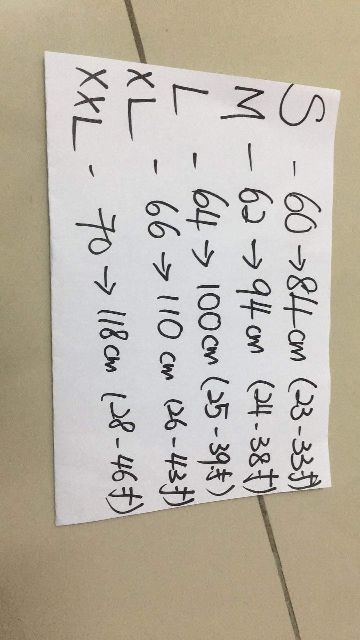 S - 60 → 84cm (23-33t)
M - 62 → 94cm (24-38t)
L - 64 → 100cm (25-39t)
XL - 66 → 110cm (26-43t)
XXL - 70 → 118cm (28-46t)